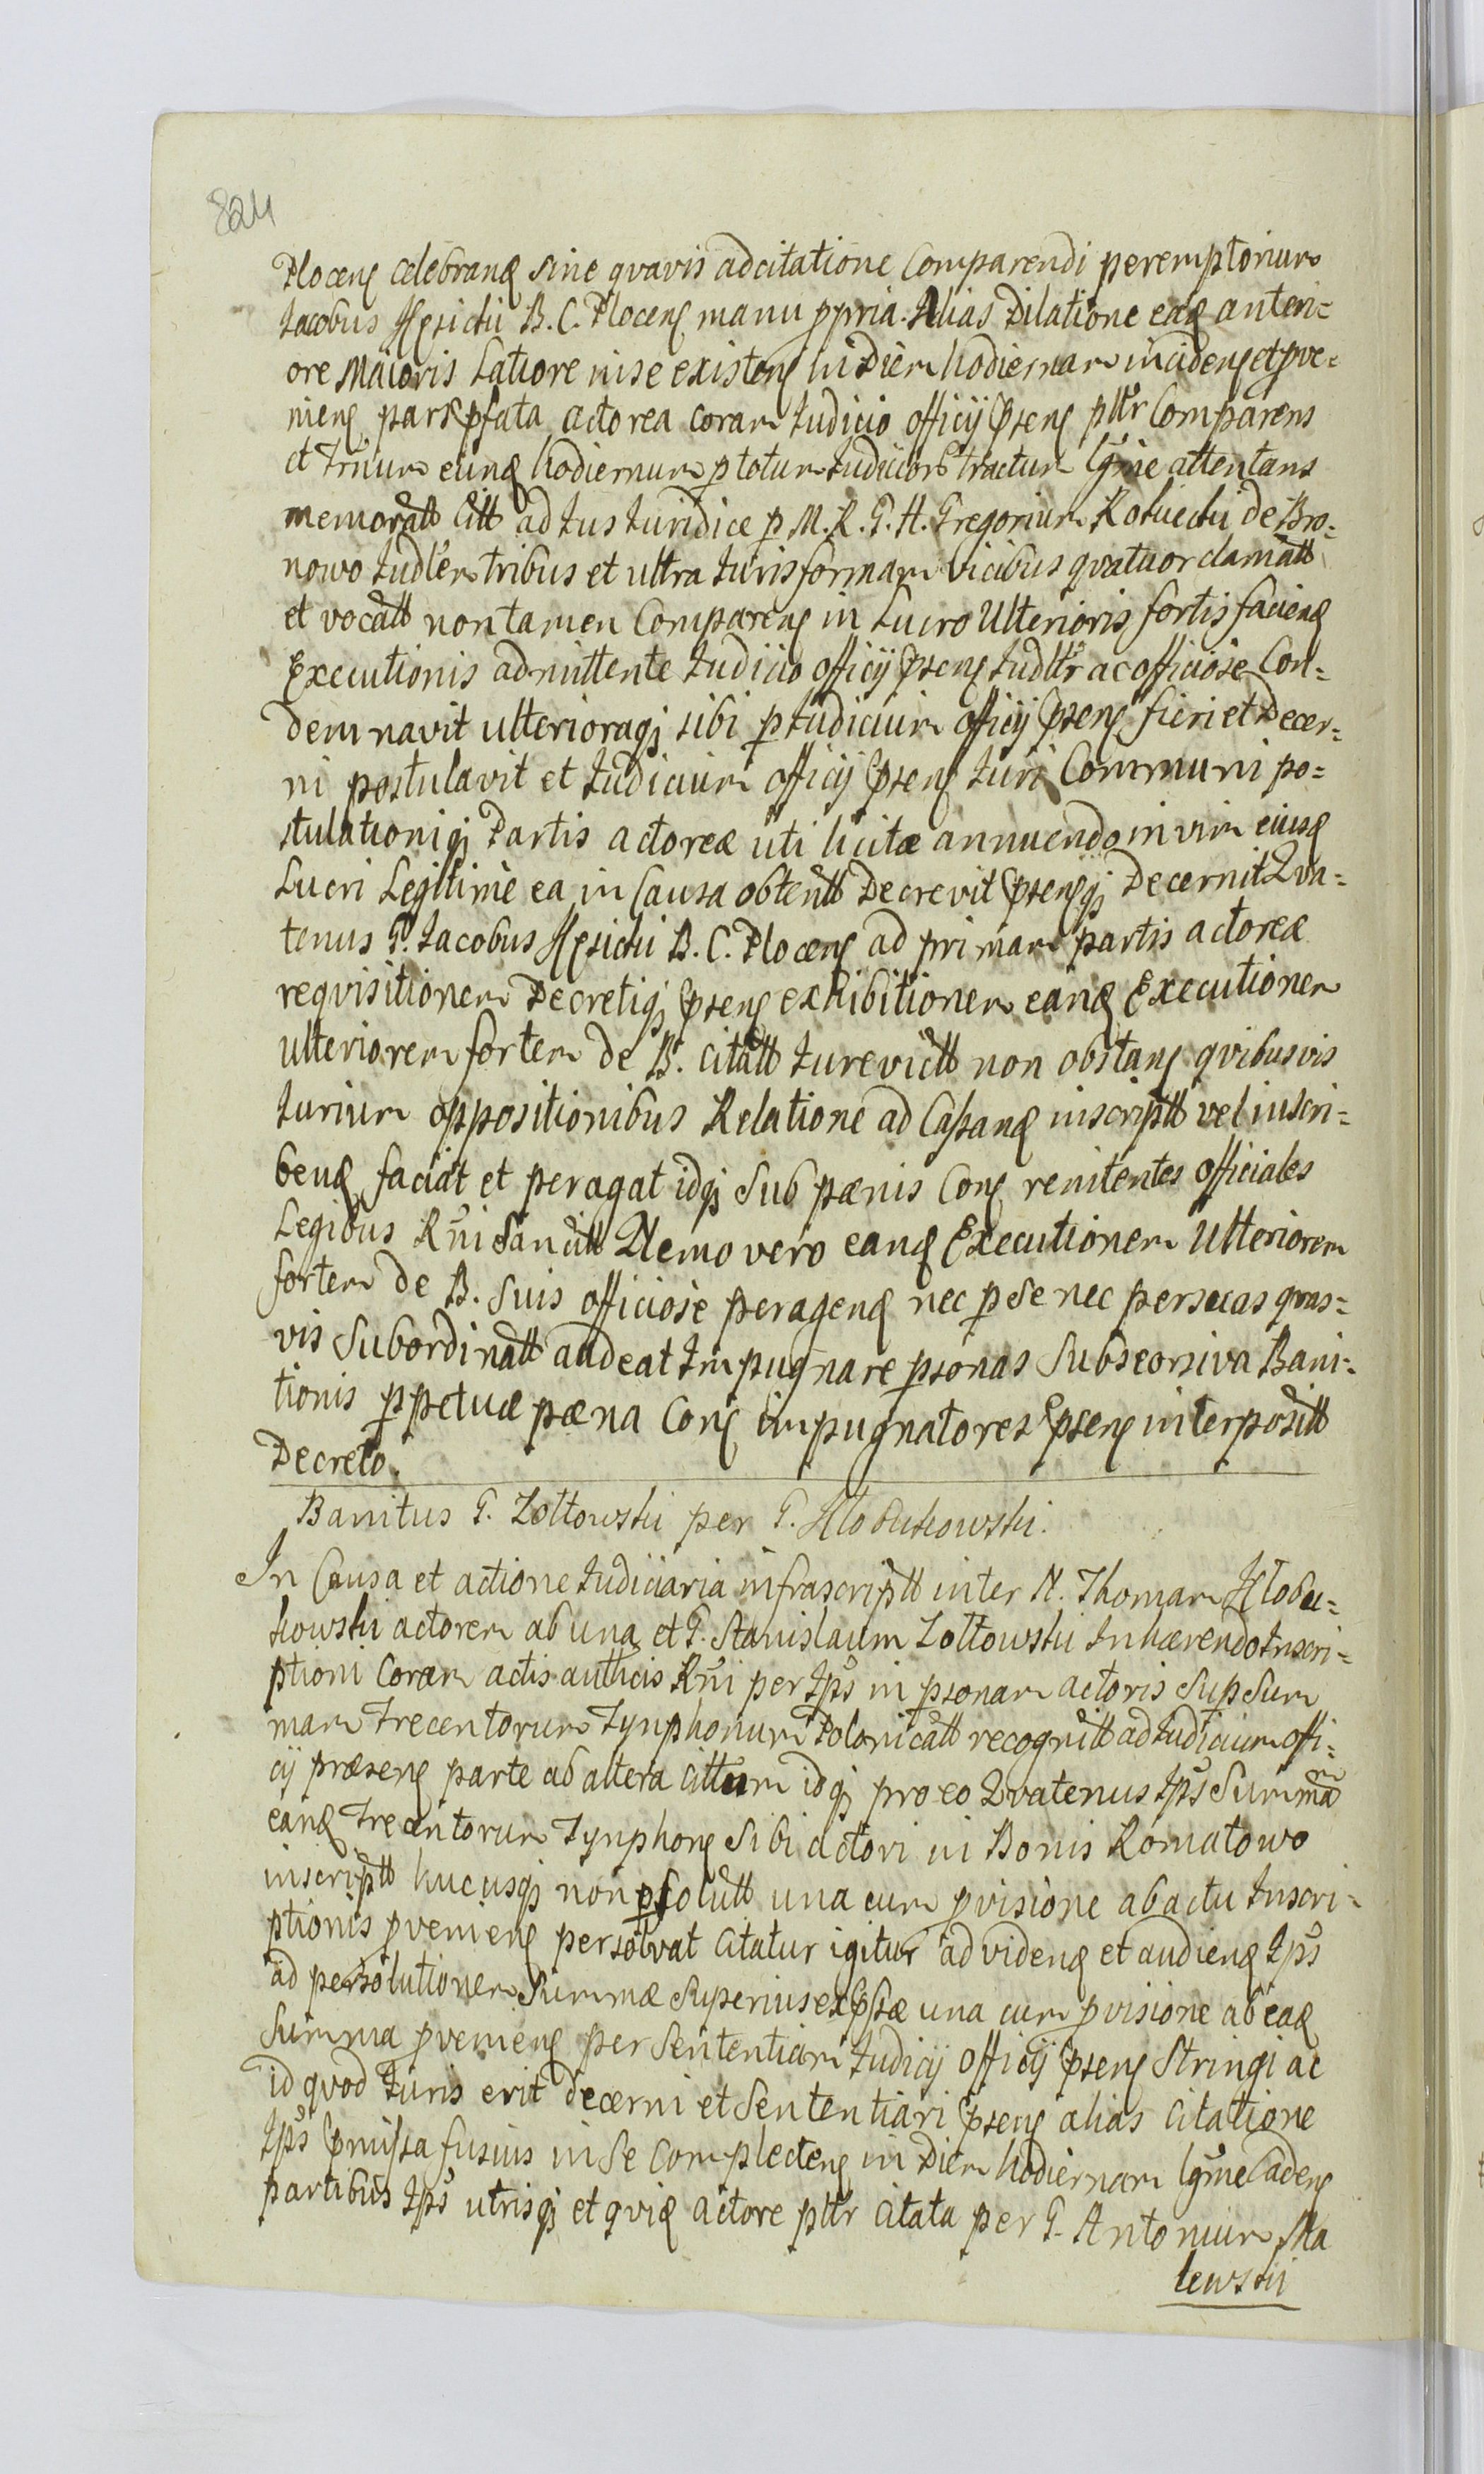 824
Plocen celebrand sine qvavis adcitatione Comparendi peremptorium
Jacobus Hesicki B. C. Plocen manu ppria. Alias Dilatione ead anteri=
ore Maioris Latiore in se existen in Diem hodiernam inciden et pve=
nien pars pfata actorea coram Judicio officij psen pltr Comparens
et Trium eund hodiernum p totum Judiciorum tractum lgme attentans
memoratt Citt ad Jus Juridice p M. R. G. H. Gregorium Kotwicki de Bro=
nowo Judlem tribus et ultra Juris formam vicibus qvatuor clamatt
et vocatt non tamen Comparen in Lucro Ulterioris fortis faciend
Executionis admittente Judicio officij psen Judltr ac officiose Con=
demnavit ulterioraqj sibi p Judicium officij psen fieri et Decer=
ni postulavit et Judicium officij psen Juri Communi po=
stulationiqj Partis actoreæ uti licitæ annuendo in vim eiusd
Lucri Legitime ea in Causa obtentt Decrevit psenqj Decernit Qva=
tenus G. Jacobus Hesicki B. C. Plocen ad primam partis actoreæ
reqvisitionem Decretiqj psen exhibitionem eand Executionem
ulteriorem fortem de B. citatt Jurevictt non obstan qvibusvis
Jurium oppositionibus Relatione ad Cassand inscriptt vel inscri=
bend faciat et peragat idqj Sub pænis Con renitentes officiales
Legibus Rni Sancitt Nemo vero eand Executionem Ulteriorem
fortem de B. Suis officiose peragend nec p Se nec per suas qvas=
vis Subordinatt audeat Impugnare psonas Subseorsiva Bani=
tionis ppetuæ pæna Con impugnatores psen interpositt
Decreto.
Banitus G. Zołtowski per G. Kłobukowski.
In Causa et actione Judiciaria infrascriptt inter N. Thomam Kłobu=
kowski actorem ab una et G. Stanislaum Zołtowski Inhærendo Inscri=
ptioni Coram actis authcis Rni per Ips in psonam actoris Sup Sum
mam Trecentorum Tynphonum Polonicatt recognitt ad Judicium offi=
cij præsen parte ab altera Cittum idqj pro eo Qvatenus Ips Summam
eand Trecentorum Tynphon Sibi actori in Bonis Romatowo
inscriptt hucusqj non psolutt una cum pvisione ab actu Inscri=
ptionis pvenien persolvat Citatur igitur ad vidend et audiend Ips
ad persolutionem Summæ Superius expssæ una cum pvisione ab ead
Summa pvenien per Sententiam Judicij officij psen Stringi ac
id qvod Juris erit decerni et Sententiari psen alias Citatione
Ips pmissa fusius in Se Complecten in Diem hodiernam lgme Caden
partibus Ips utrisqj et qvid actore pltr Citata per G. Antonium Ma
lewski